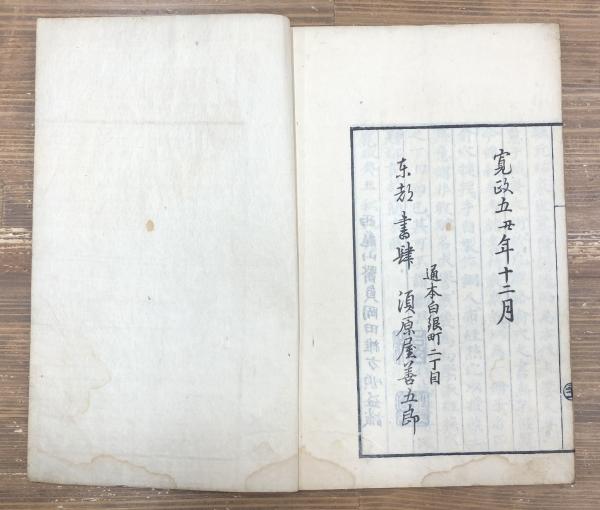 寛政五丑年十二月
通本白銀町二丁目
东都 書肆 須原屋善五郎